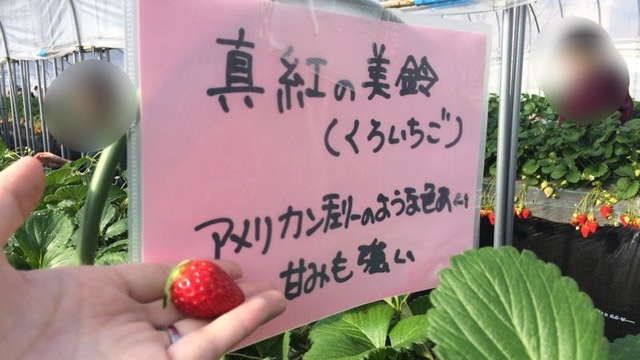 真紅の美鈴
(くろいちご)
アメリカンチェリーのような色あい
甘みも強い